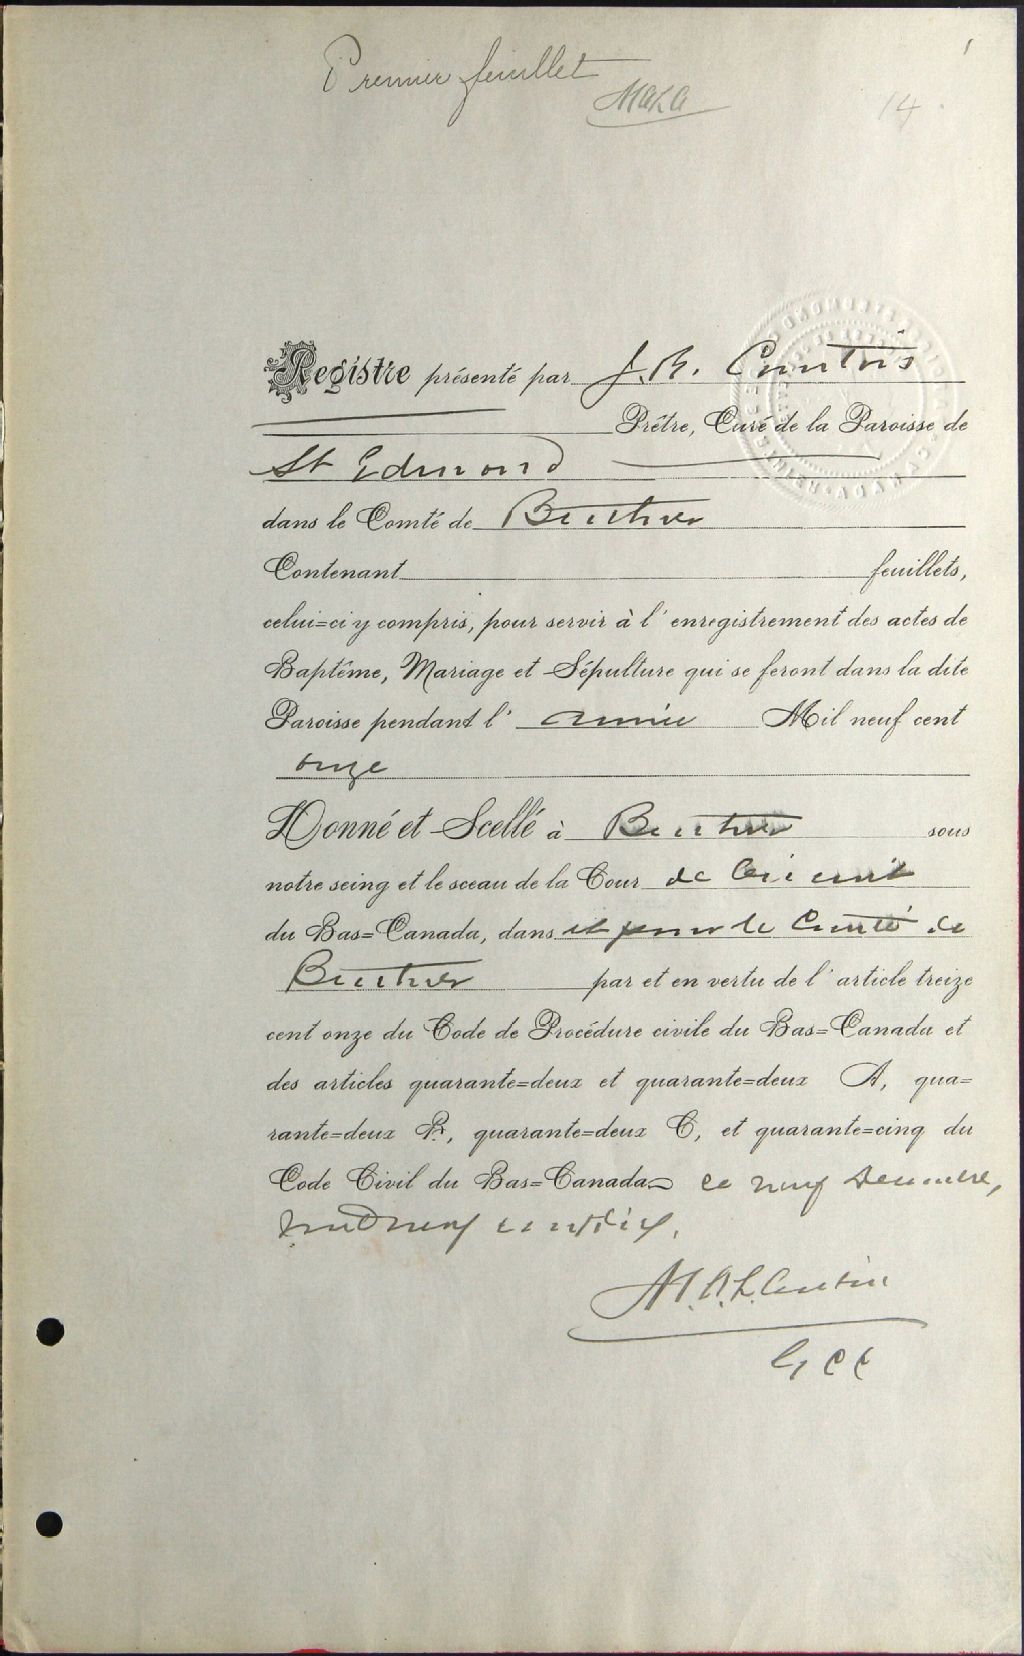 1
Premier feuillet
MALA
14
Registre présenté par J. B. Comtois
Prêtre, Curé de la Paroisse de
St Edmond
dans le Comté de Berthier
Contenant feuillets,
celui=ci y compris, pour servir à l'enregistrement des actes de
Baptême, Mariage et Sépulture qui se feront dans la dite
Paroisse pendant l'année Mil neuf cent
onze
Donné et Scellé à Berthier sous
notre seing et le sceau de la Cour de Circuit
du Bas=Canada, dans et pour le Comté de
Berthier par et en vertu de l'article treize
cent onze du Code de Procédure civile du Bas=Canada et
des articles quarante=deux et quarante=deux A, qua=
rante=deux B, quarante=deux C, et quarante=cinq du
Code Civil du Bas=Canada ce neuf Décembre,
mil neuf cent dix.
M.A.L.
G C C